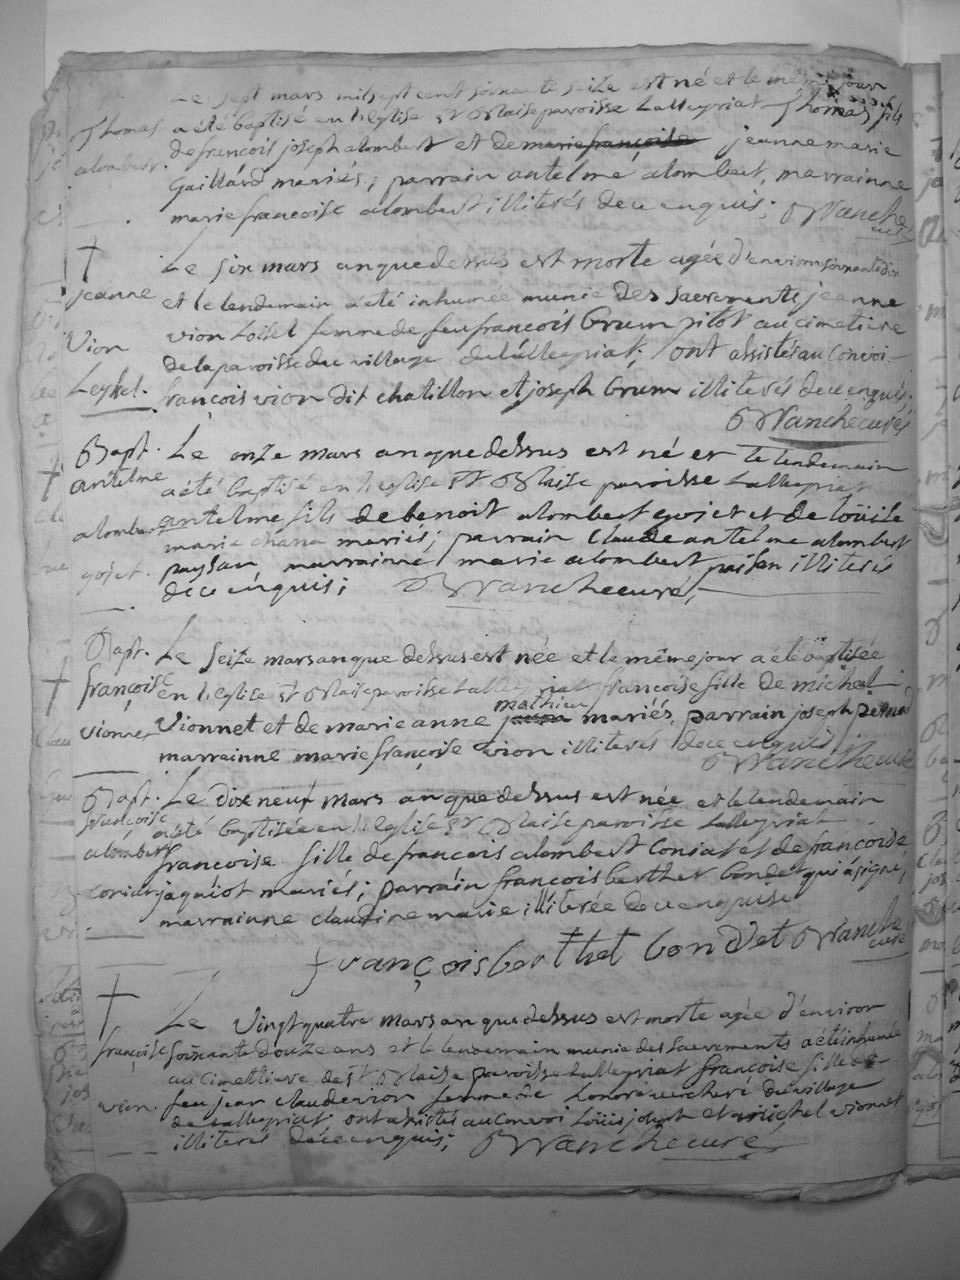 Le sept mars mil sept cent soixante seize est né et le même jour
Thomas a été baptisé en l'eglise St Blaise paroisse Lalleyriat Thomas fils
alombert. de françois joseph alombert et de marie françoise jeanne marie
Gaillard mariés; parrain antelme alombert, marrainne
marie françoise alombert illiterés de ce enquis; Blanche
curé
Le six mars an que dessus est morte agée d'environ soixante dix
jeanne et le lendemain a été inhumée munie des sacrements jeanne
Vion vion Loysel femme de feu françois Brun pilot au cimetiere
de la paroisse du village de Lalleyriat; sont assistés au convoi
Leysel. françois vion dit chatillon et joseph Brun illiterés de ce enquis;
Blanche curé
Bapt. Le onze mars an que dessus est né et le lendemain
antelme a été baptisé en l'eglise St Blaise paroisse Lalleyriat
alombert antelme fils de benoit alombert gojet et de loüise
marie chana mariés; parrain claude antelme alombert
gojet. paysan marrainne marie alombert illiterés
de ce enquis; Blanche curé,
Bapt. Le seize mars an que dessus est née et le même jour a été baptisée
françoise en l'eglise St Blaise paroisse Lalleyriat françoise fille de michel
mathieu
vionnet Vionnet et de marie anne mariés, parrain joseph
marrainne marie françoise vion illiterés de ce enquis;
Blanche curé
Bapt. Le dix neuf mars an que dessus est née et le lendemain
françoise a été baptisée en l'eglise St Blaise paroisse Lalleyriat
alombert francoise fille de francois alombert Coniat et de françoise
coniat jaquiot mariés; parrain françois berthet bondet qui a signé,
marrainne claudine marie illiterée de ce enquise
françois berthet bondet Blanche
curé
Le vingt quatre mars an que dessus est morte agée d'environ
françoise soixante douze ans et le lendemain munie des sacrements a été inhumée
au cimettiere de St Blaise paroisse Lalleyriat françoise fille de
vion. feu jean claude vion femme de du village
de Lalleyriat; ont assistés au convoi Loüis joseph et michel vionnet
illiterés de ce enquis; Blanche curé